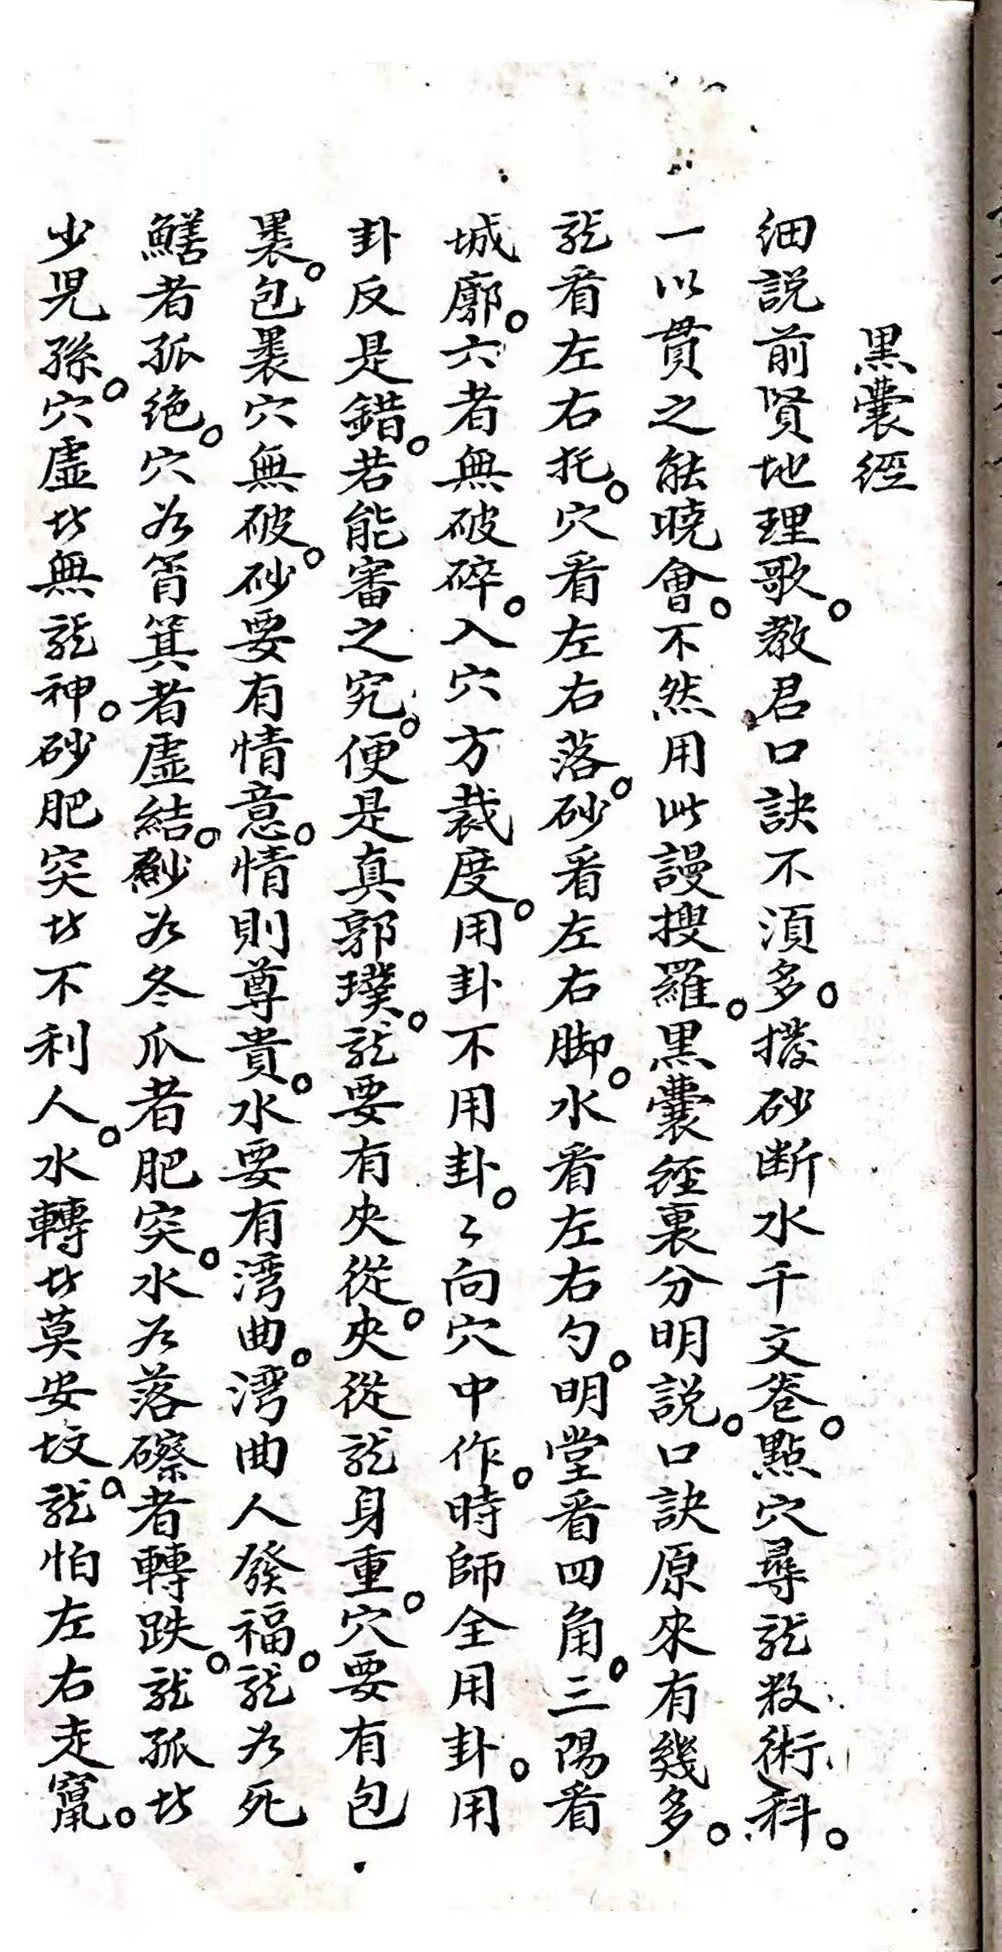 黑囊經
細説前賢地理歌。教君口訣不湏多。撥砂断水千文卷。點穴尋龍数術科。
一以貫之能曉會。不然用此謾搜羅。黑囊經裏分明説。口訣原來有幾多。
龍看左右托。穴看左右落。砂看左右脚。水看左右勺。明堂看四角。三陽看
城廓。六者無破碎。入穴方裁度。用卦不用卦。〻向穴中作。時師全用卦。用
卦反是錯。若能審之究。便是真郭璞。龍要有夾從。夾從龍身重。穴要有包
裹。包裹穴無破。砂要有情意。情則尊貴。水要有湾曲。湾曲人發福。龍為死
鱔者孤绝。穴為筲箕者虛結。砂為冬瓜者肥突。水為落磜者轉跌。龍孤𡊮
少児孫。穴虛𡊮無龍神。砂肥突𡊮不利人。水轉𡊮莫安坟。龍怕左右走竄。